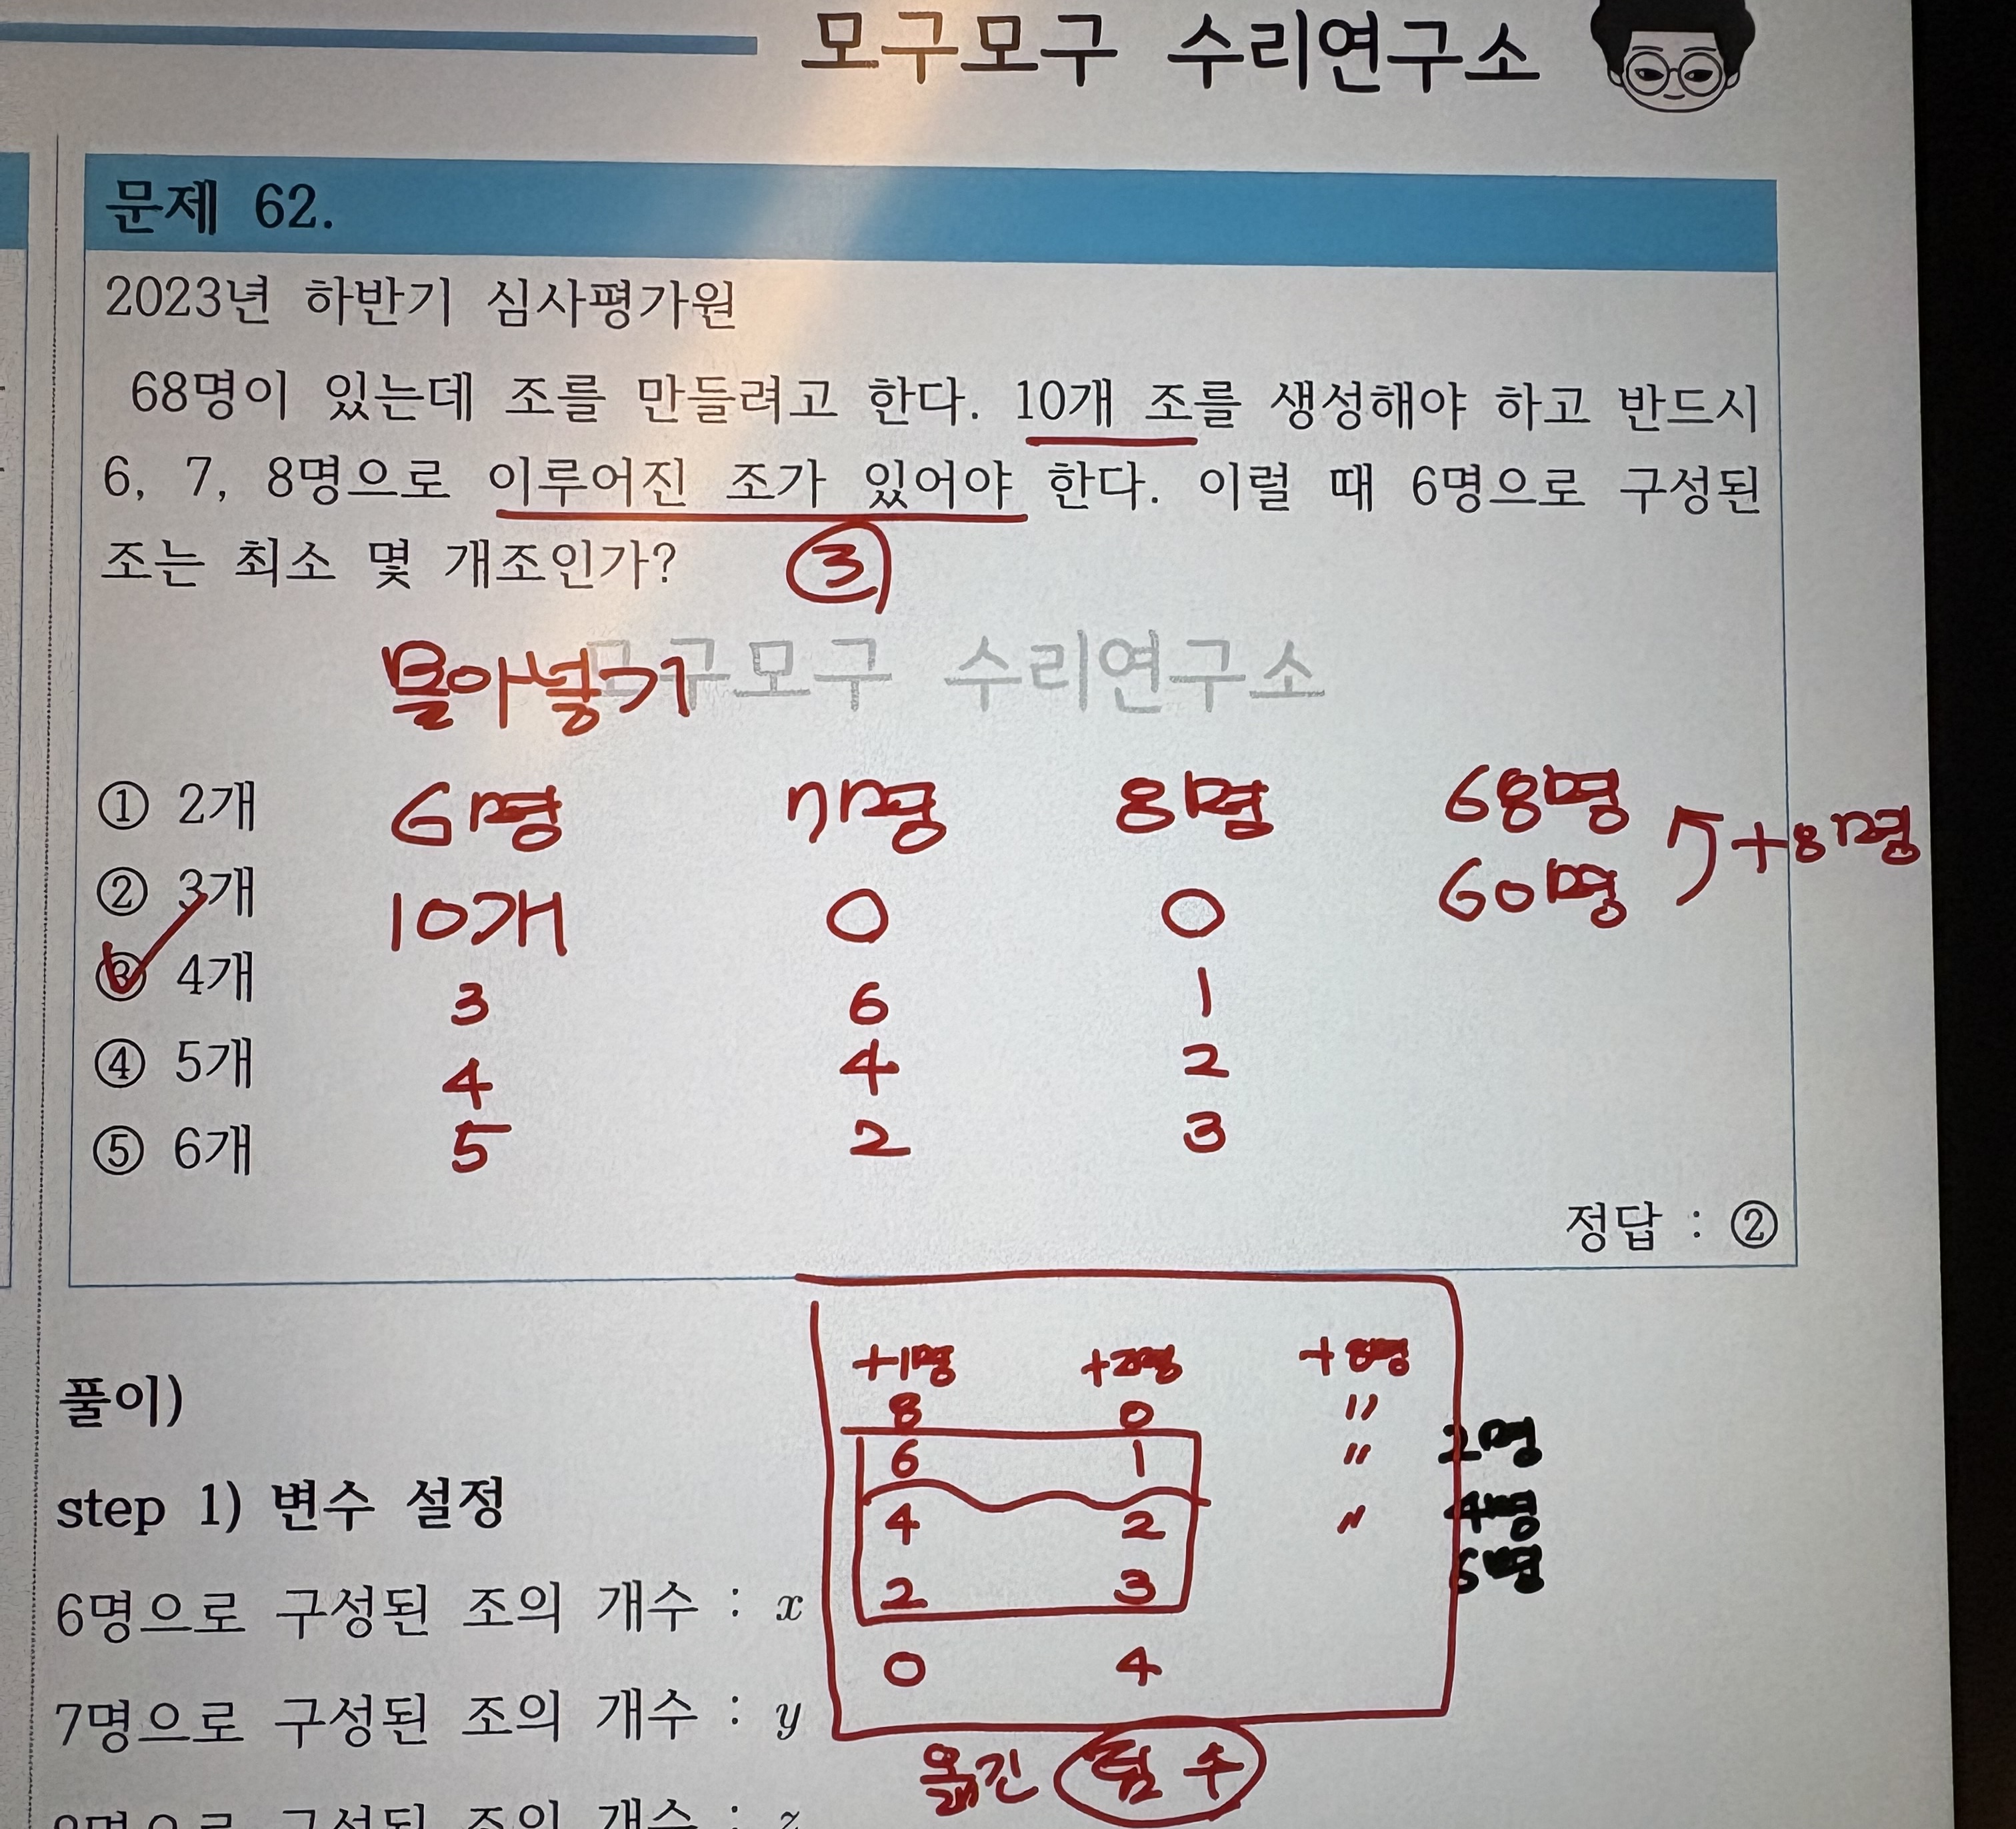 모구모구 수리연구소
문제 62.
2023년 하반기 심사평가원
68명이 있는데 조를 만들려고 한다. 10개 조를 생성해야 하고 반드시
6, 7, 8명으로 이루어진 조가 있어야 한다. 이럴 때 6명으로 구성된
조는 최소 몇 개조인가? ③
몰아넣기
모구모구 수리연구소
① 2개 6명 7명 8명 68명
+8명
② 3개 10개 0 0 60명
③ 4개 3 6 1
④ 5개 4 4 2
⑤ 6개 5 2 3
정답 : ②
풀이)
step 1) 변수 설정
6명으로 구성된 조의 개수 : x
7명으로 구성된 조의 개수 : y
8명으로 구성된 조의 개수 : z
+1명 +2명 +8명
8 0 〃
6 1 〃 2명
4 2 〃 4명
2 3 6명
0 4
옮긴 팀 수